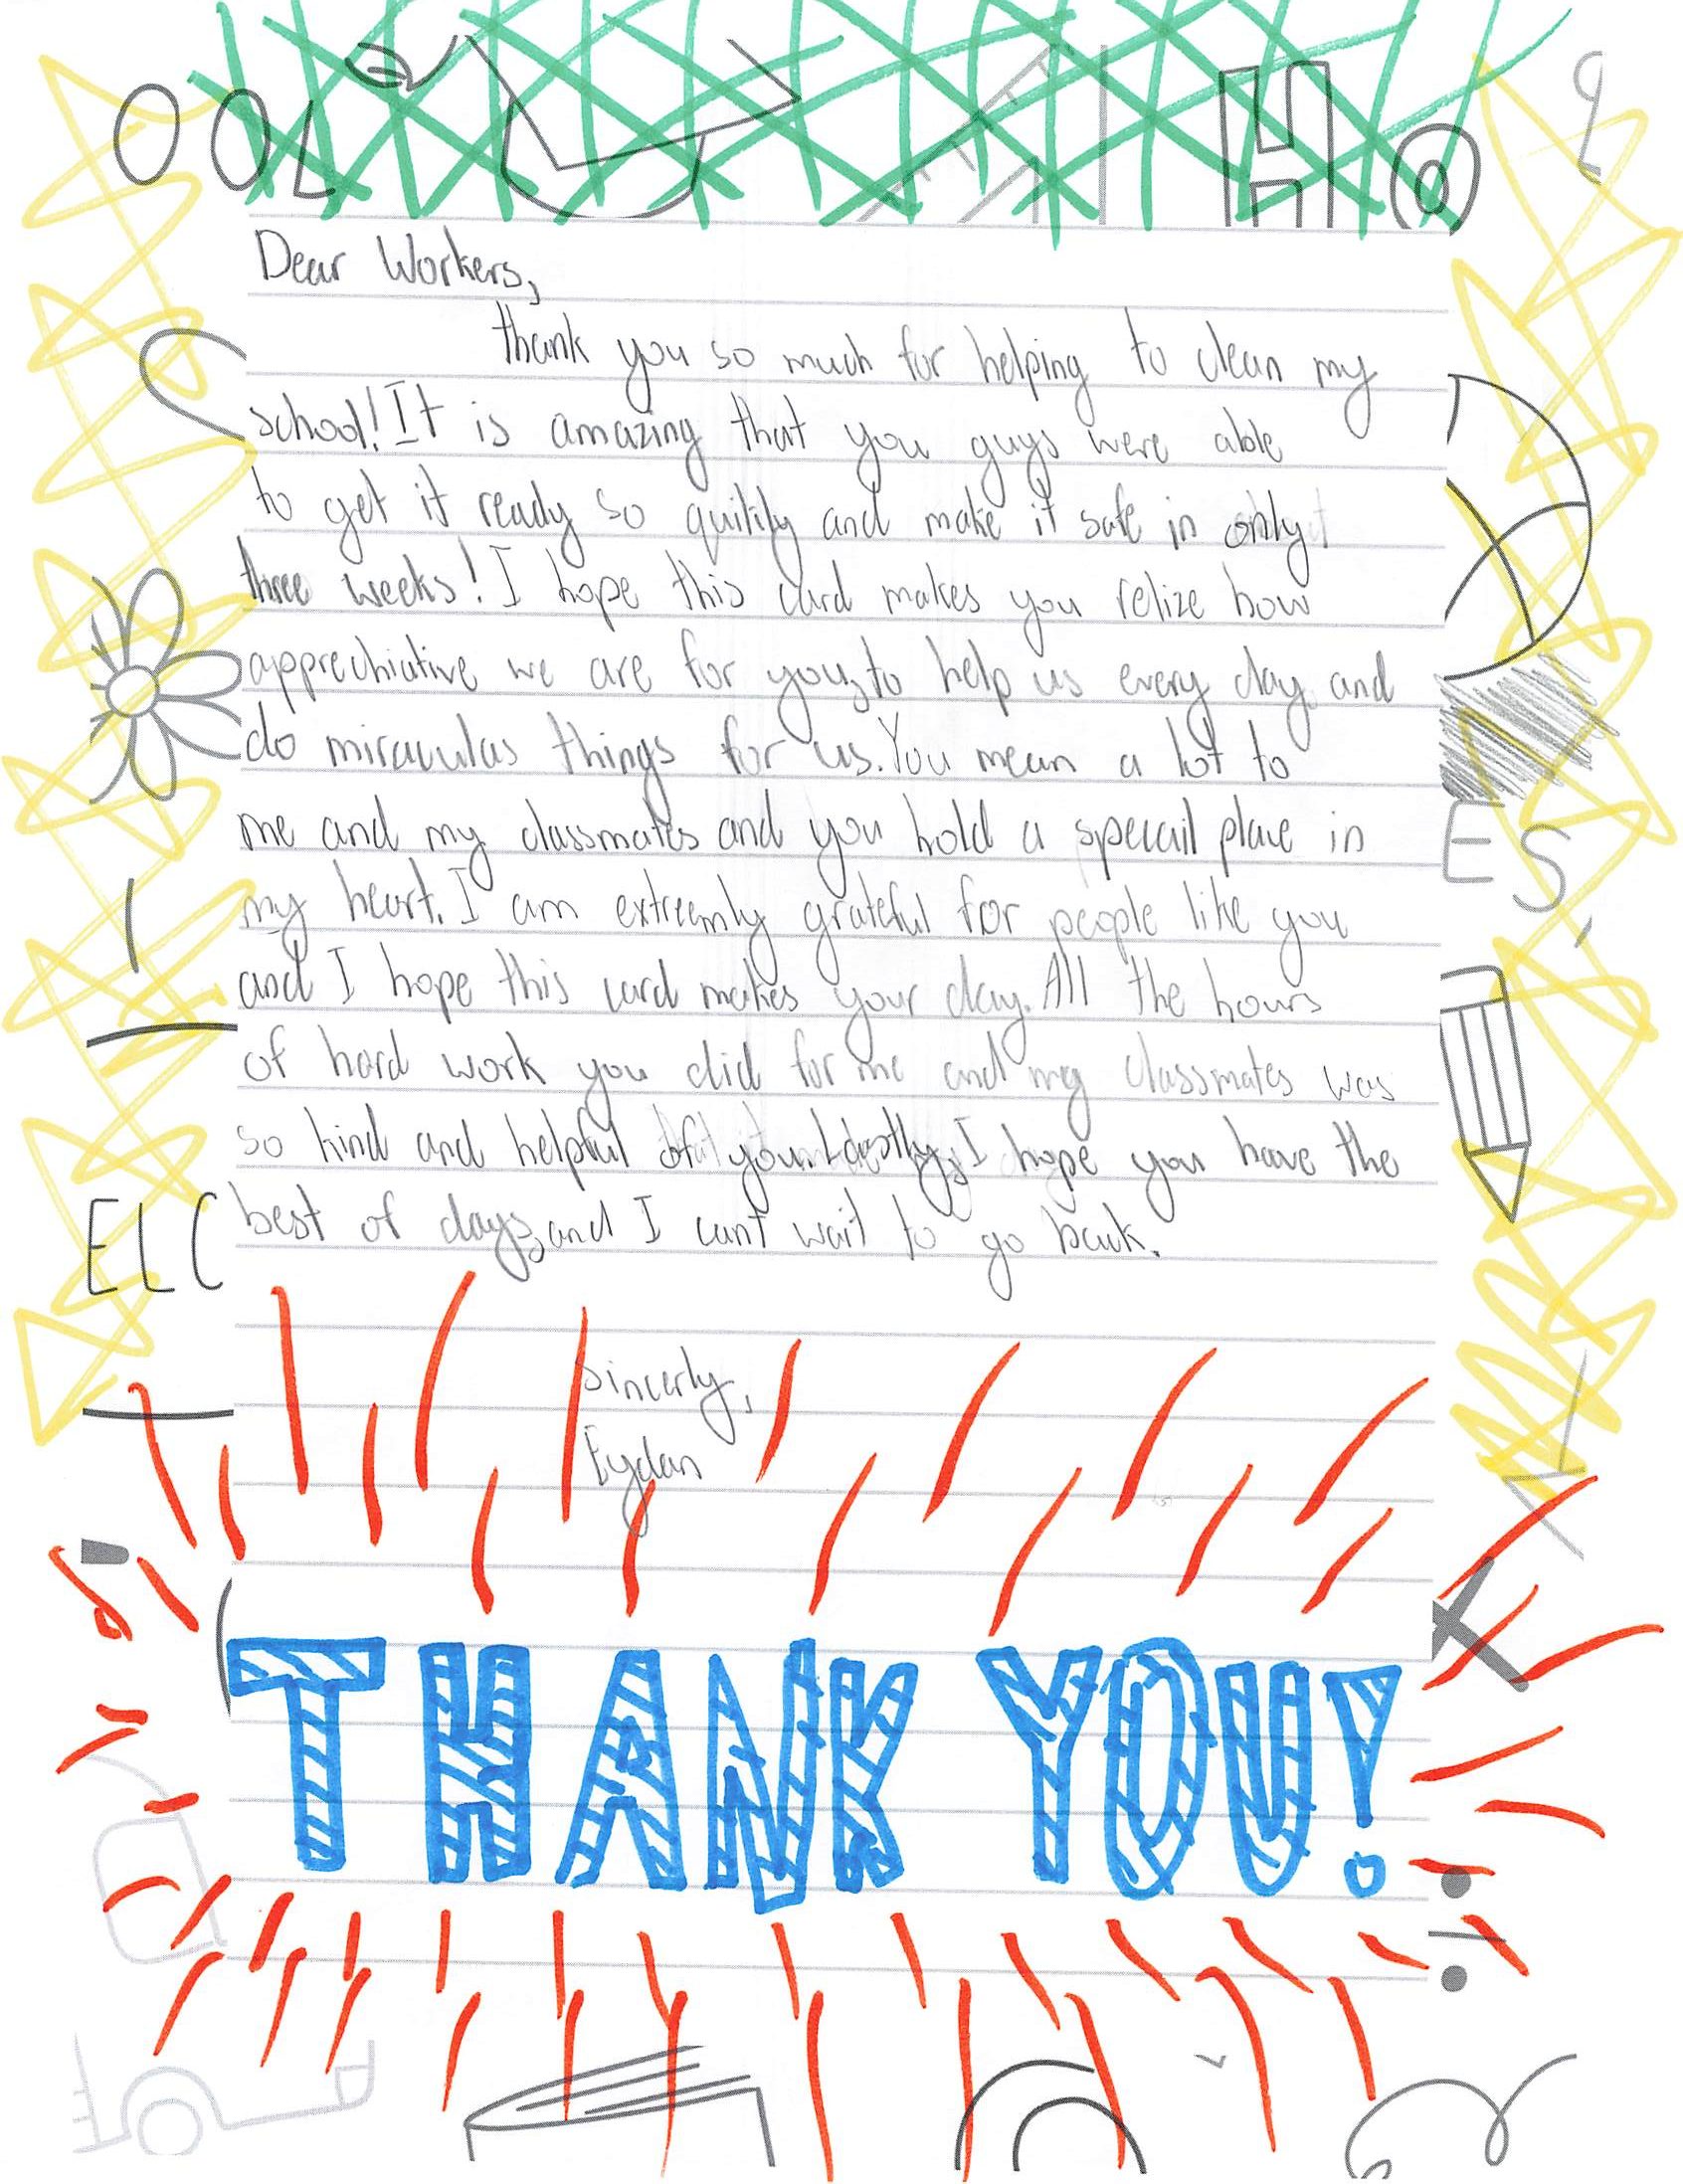 OOL
Ho
Dear Workers,
thank you so much for helping to clean my
school! It is amazing that you guys were able
to get it ready so quikily and make it safe in only
three weeks! I hope this card makes you relize how
apprechiative we are for you, to help us every day, and
do miraculas things for us. You mean a lot to
me and my classmates and you hold a specail place in
my heart. I am extreemly grateful for people like you
and I hope this card makes your day. All the hours
of hard work you did for me and my classmates was
so kind and helpful of you. Lastly, I hope you have the
best of days, and I cant wait to go back.
Sincerly,
Eydan
THANK YOU!
ES
ELC